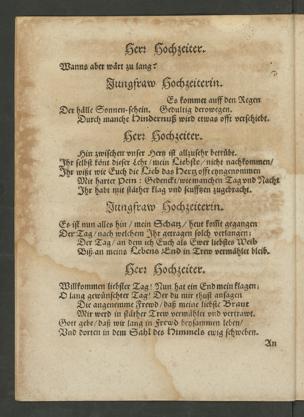 Herr Hochzeiter.
Wanns aber wärt zu lang?
Jungfraw Hochzeiterin.
Es kommet auff den Regen
Der hälle Sonnen-schein. Gedultig derowegen.
Durch manche Hindernuß wird etwas offt verschiebt.
Herr Hochzeiter.
Hin zwischen vnser Hertz ist allzusehr betrübt.
Ihr selbst könt dieser Lehr / mein Liebste / nicht nachkommen /
Ihr wißt wie Euch die Lieb das Hertz offt eyngenommen
Mit harter Pein: Gedenckt / wie manchen Tag vnd Nacht
Ihr habt mit stäther klag vnd seufftzen zugebracht.
Jungfraw Hochzeiterin.
Es ist nun alles hin / mein Schatz / heut kompt gegangen
Der Tag / nach welchem Ihr getragen solch verlangen:
Der Tag / an dem ich Euch als Ewer liebstes Weib
Biß an meins Lebens End in Trew vermählet bleib.
Herr Hochzeiter.
Willkommen liebster Tag! Nun hat ein End mein klagen;
O lang gewünschter Tag! Der du mir thust ansagen
Die angenemme Frewd / daß meine liebste Braut
Mir werd in stäther Trew vermählet vnd vertrawt.
Gott gebe / daß wir lang in Frewd beysammen leben /
Vnd dorten in dem Sahl des Himmels ewig schweben.
An